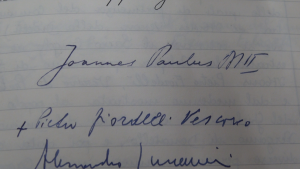 Joannes Paulus PP II
+ Pietro Fiordelli Vescovo
Alessandro